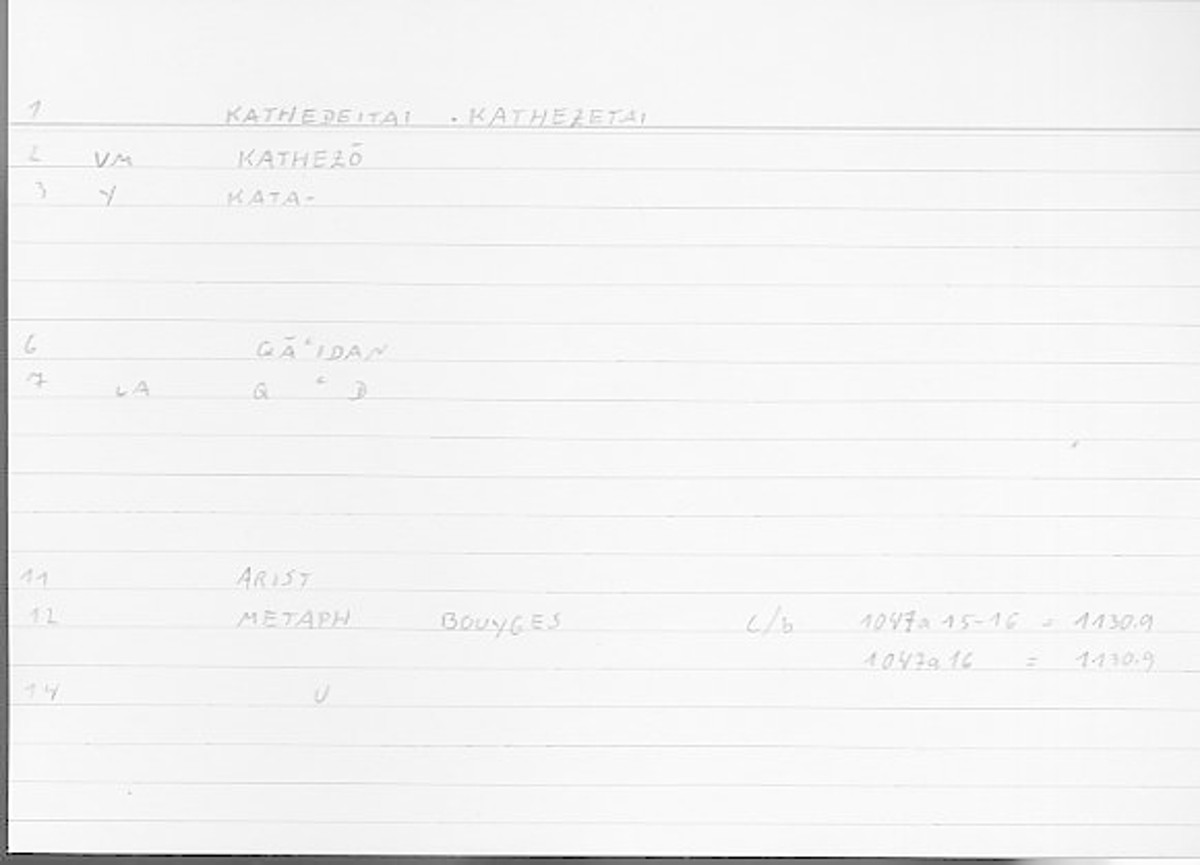 1 KATHEDEITAI . KATHEZETAI
2 VM KATHEZŌ
3 Y KATA-
6 QĀʿIDAN
7 LA Q ʿ D
11 ARIST
12 METAPH BOUYGES C/b 1047a 15-16 = 1130.9
1047a 16 = 1130.9
14 U